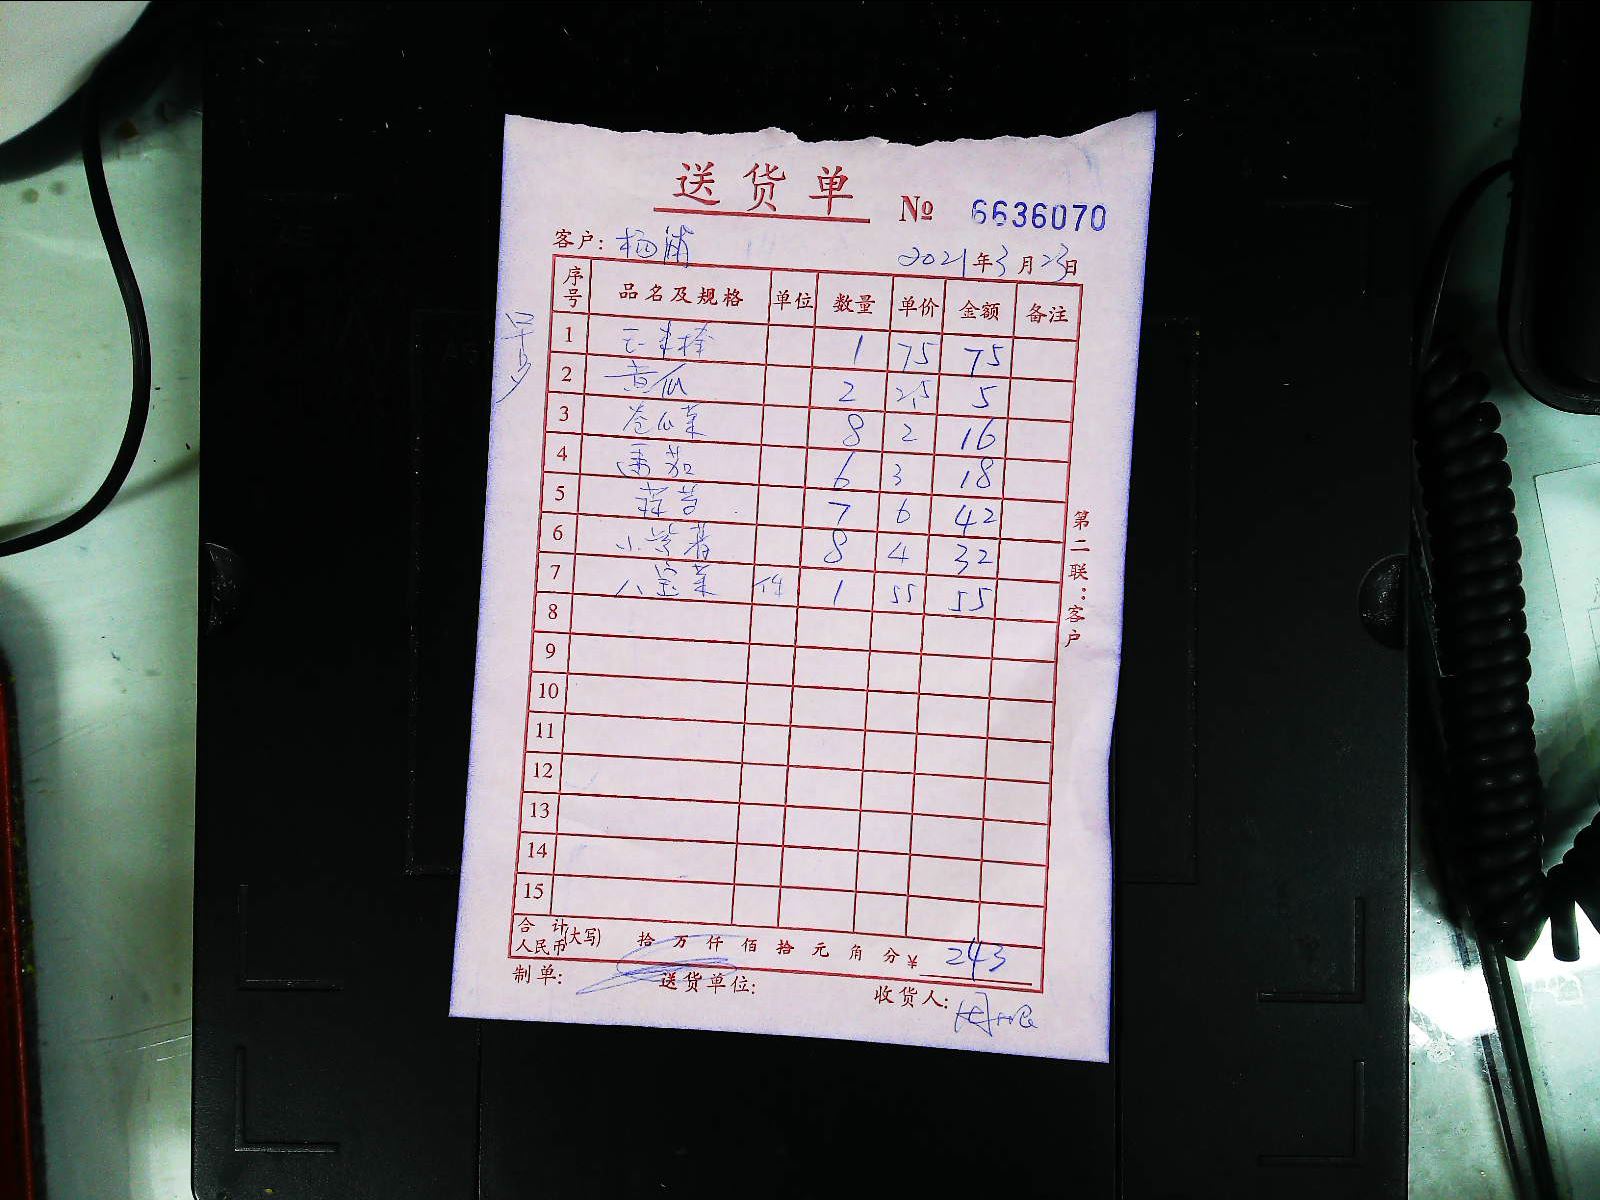 送货单 № 6636070
客户: 杨浦 2021年3月23日
序号 品名及规格 单位 数量 单价 金额 备注
1 1 75 75
2 黄瓜 2 2.5 5
3 8 2 16
4 番茄 6 3 18
5 7 6 42
6 8 4 32
7 八宝菜 件 1 55 55
8
9
10
11
12
13
14
15
合计人民币(大写) 拾 万 仟 佰 拾 元 角 分 ¥ 243
制单: 送货单位: 收货人:
第二联:客户